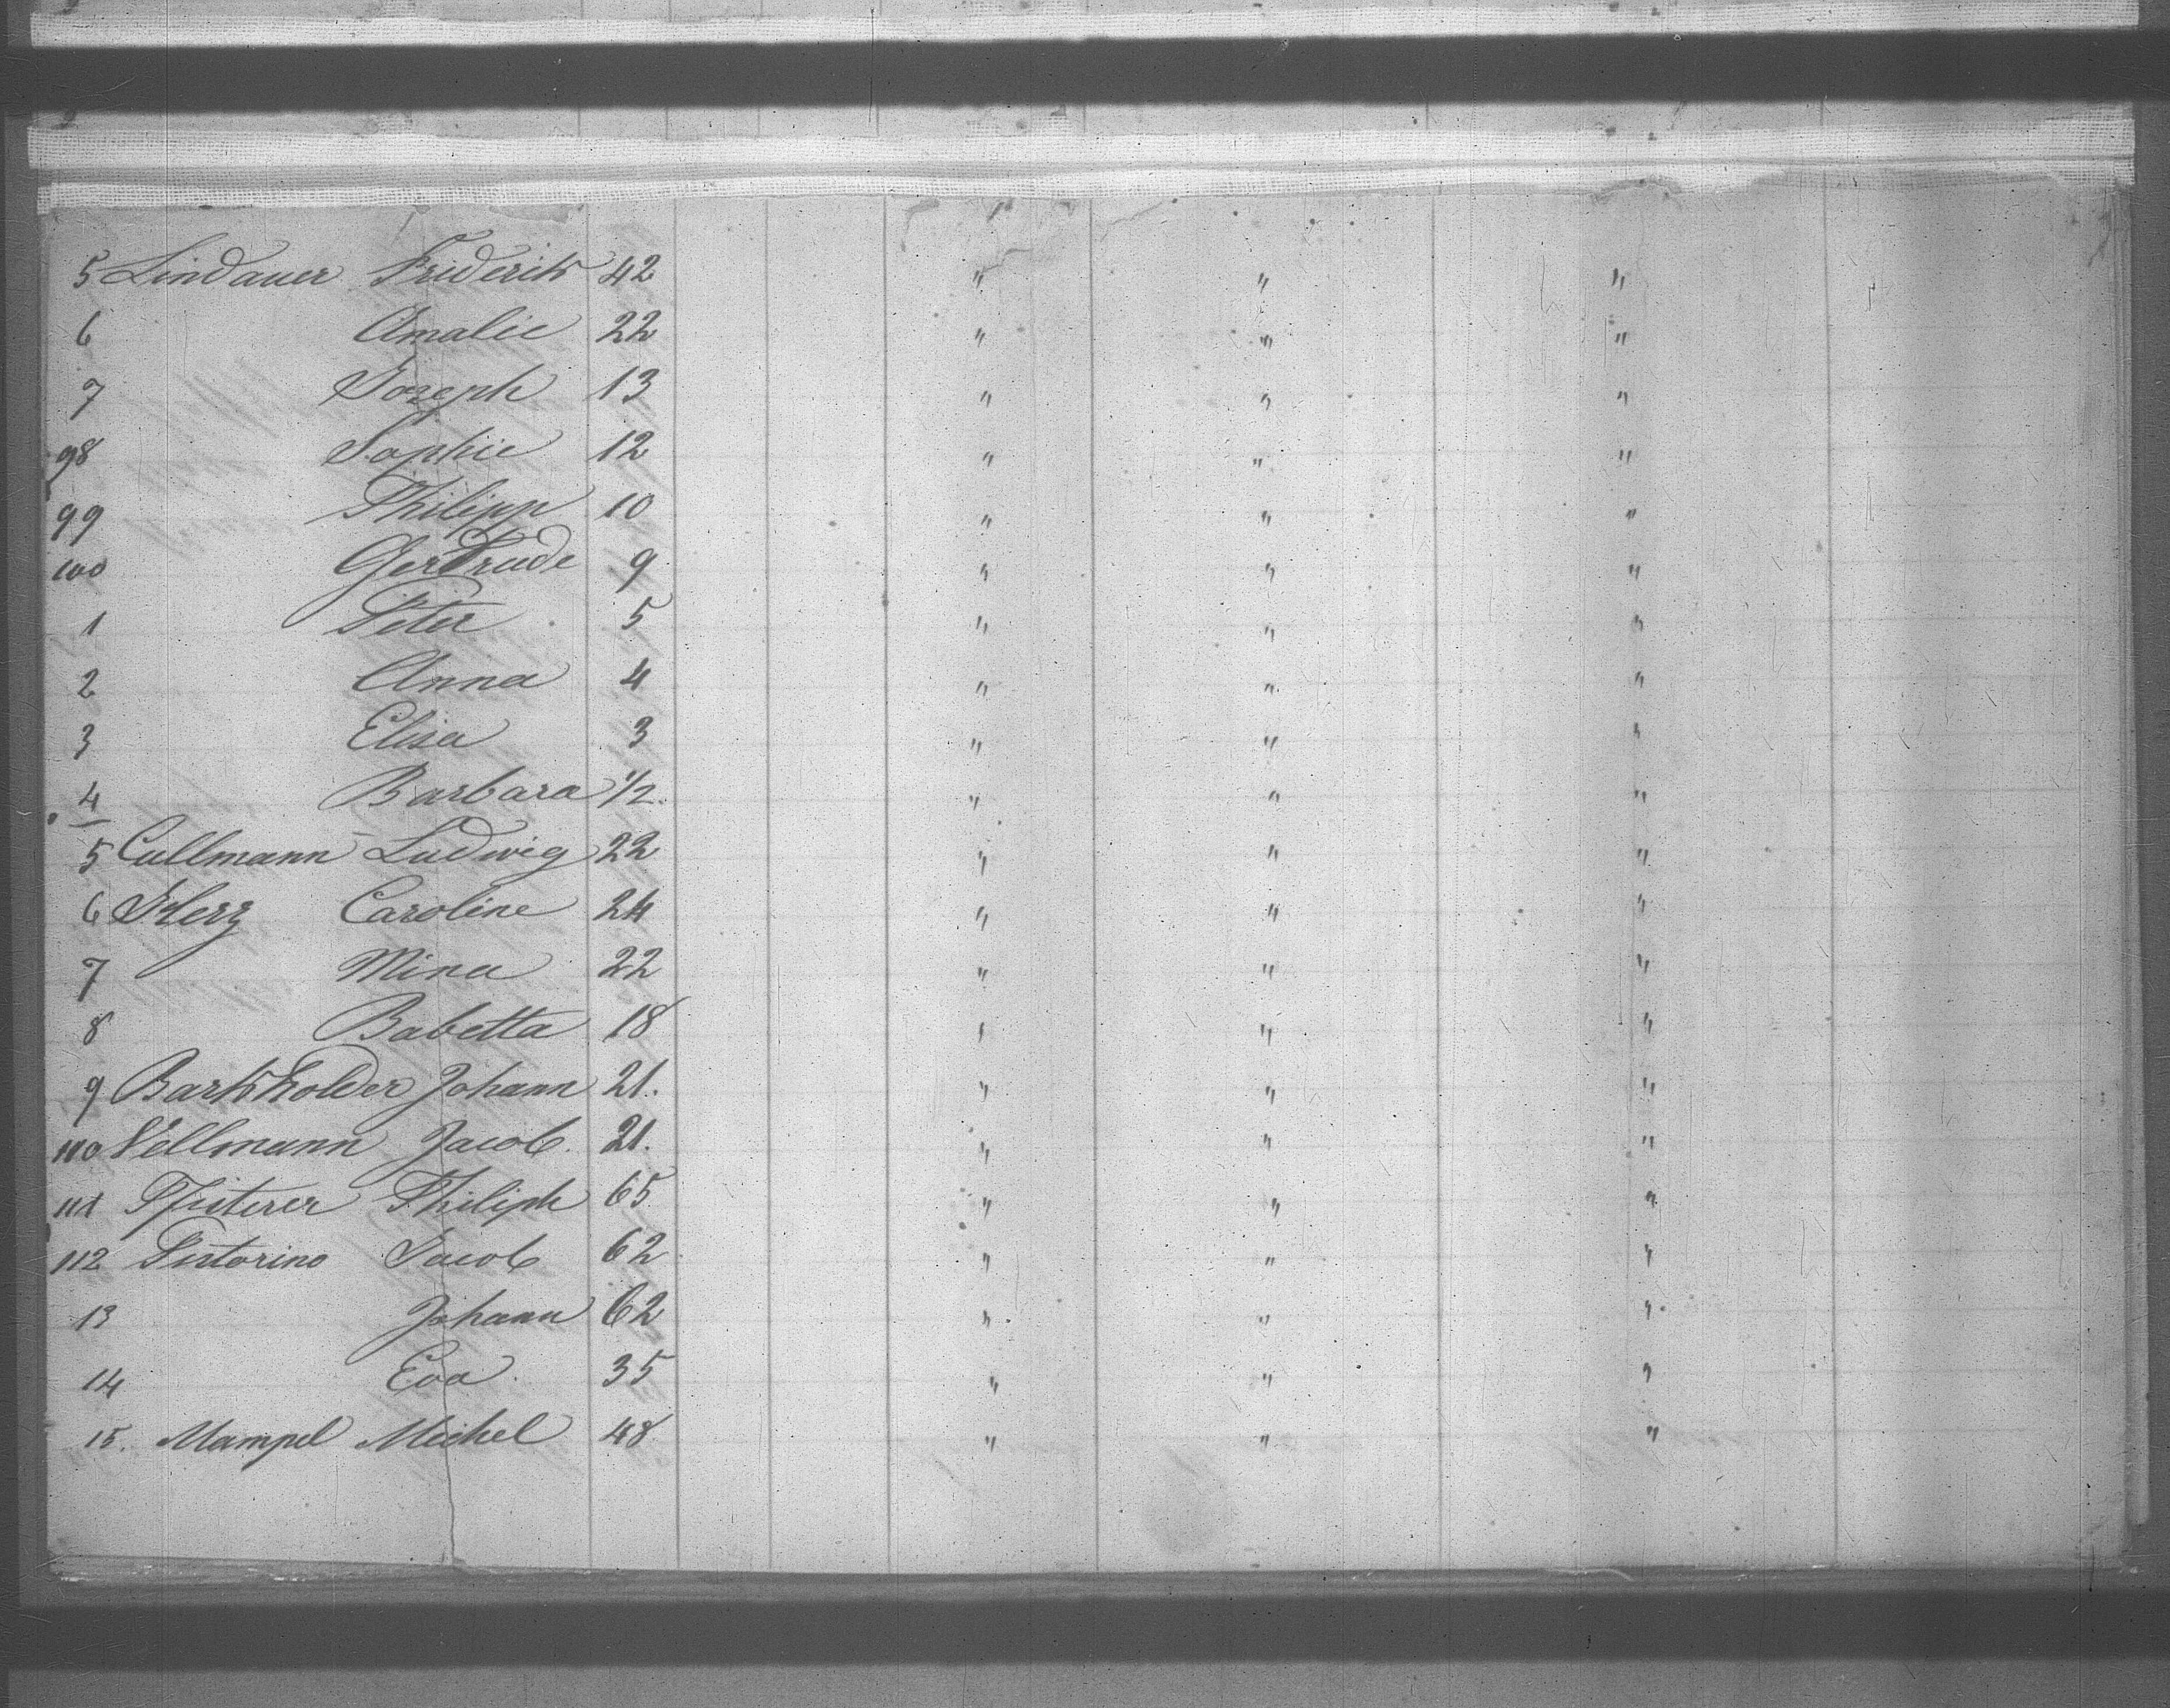 5 Lindauer Friderich 42 " " "
6 Amalie 22 " " "
7 Joseph 13 " " "
98 Sophie 12 " " "
99 Philipp 10 " " "
100 Gertrude 9 " " "
1 Peter 5 " " "
2 Anna 4 " " "
3 Elisa 3 " " "
4 Barbara 1/2. " " "
5 Cullmann Ludwig 22 " " "
6 Herz Caroline 24 " " "
7 Mina 22 " " "
8 Babetta 18 " " "
9 Johann 21. " " "
110 Vellmann Jacob. 21. " " "
111 Pfisterer Philiph 65 " " "
112 Pistorino Jacob 62 " " "
13 Johann 62 " " "
14 Eva 35 " " "
15. Mampel Michel 48 " " "